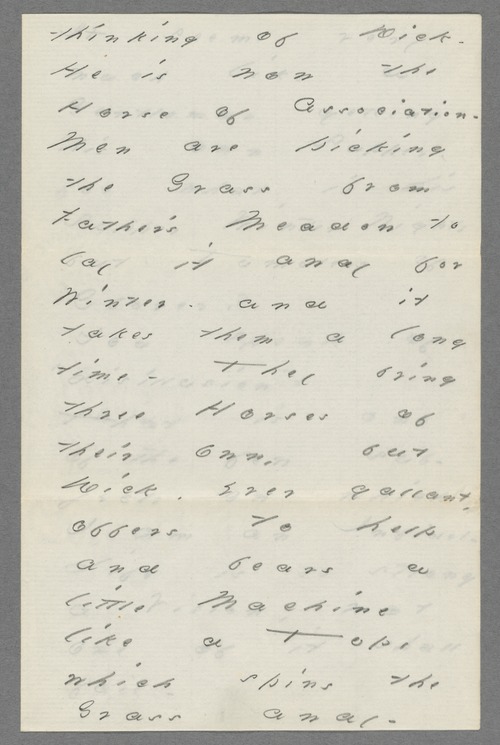 thinking of Dick.
He is now the
Horse of Association.
Men are picking
the Grass from
Father's Meadow to
lay it away for
Winter. and it
takes them a long
time - They bring
three Horses of
their own, but
Dick, ever gallant,
offers to help
and bears a
little Machine
like a Top,
which spins the
Grass away -